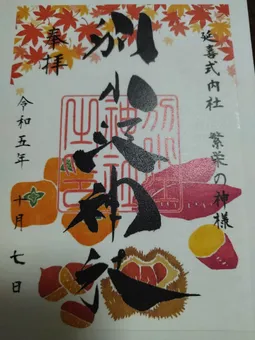 延喜式内社　繁栄の神様
奉拝
別小江神社
令和五年　十月　七日